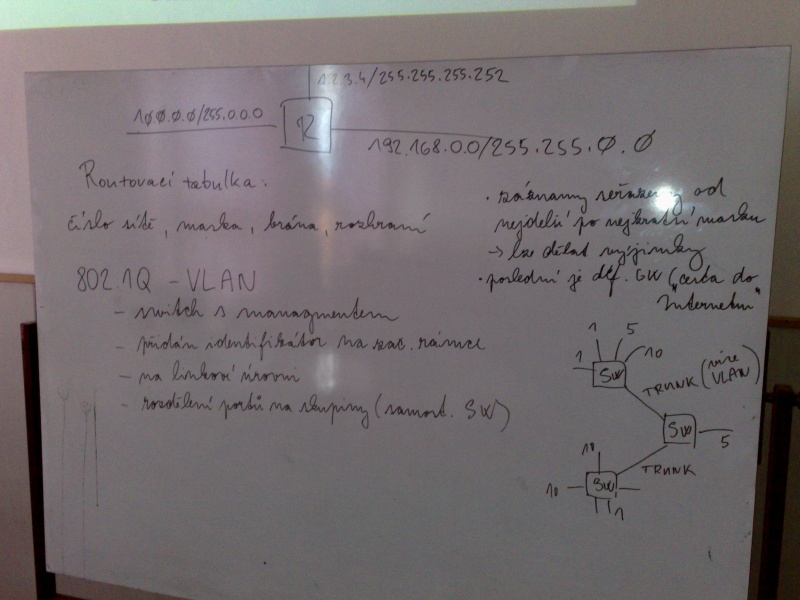 1.2.3.4/255.255.255.252
10.0.0.0/255.0.0.0
R
192.168.0.0/255.255.0.0
Routovací tabulka:
číslo sítě, maska, brána, rozhraní
• záznamy seřazeny od
nejdelší po nejkratší masku
→ lze dělat výjimky
• poslední je def. GW ("cesta do
Internetu"
802.1Q - VLAN
- switch s managmentem
- přidán identifikátor na zač. rámce
- na linkové úrovni
- rozdělení portů na skupiny (samost. SW)
1 5
1 10
SW
TRUNK (více
VLAN)
SW 5
TRUNK
10
10 SW
1